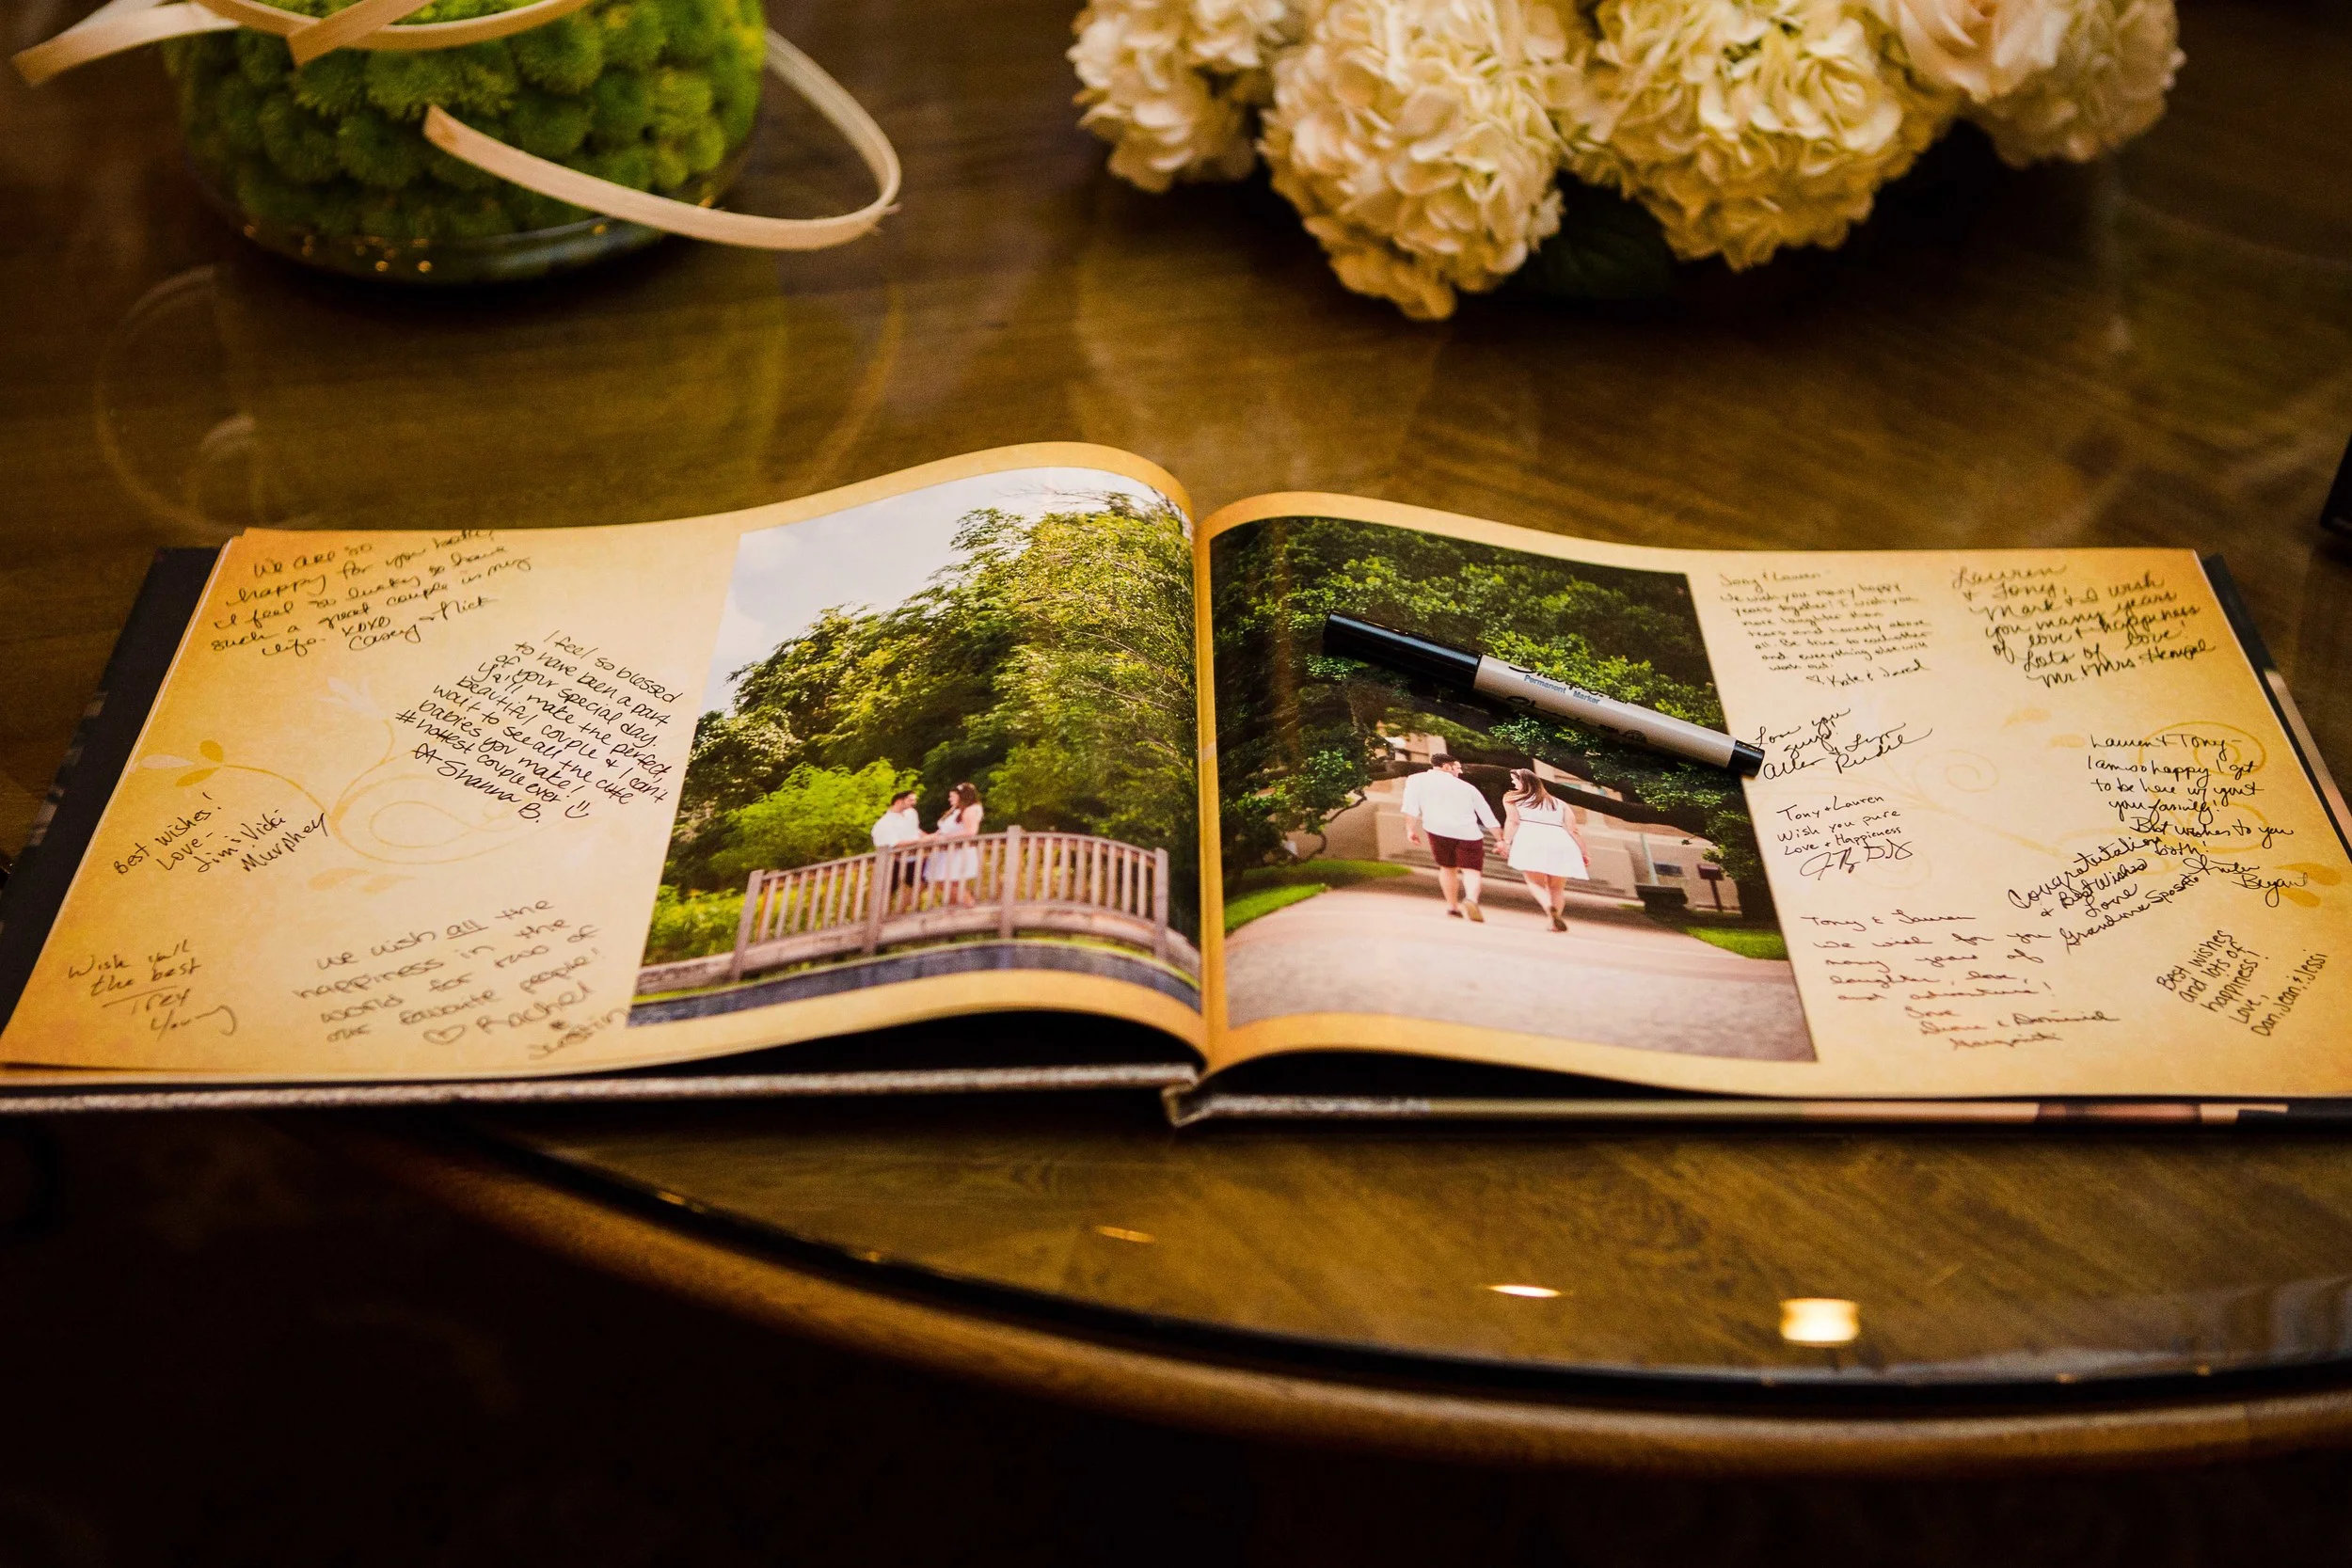 We are so
happy for you both,
I feel so lucky to have
such a great couple in my
life. XOXO
Casey + Nick
I feel so blessed
to have been a part
of your special day.
Y'all make the perfect,
beautiful couple & I can't
wait to see all the cute
babies you make!
#hottest couple ever!
Shanna
B.
Best wishes!
Love-
Jim & Vicki
Murphey
Wish ya'll
the best
Trey
Young
we wish all the
happiness in the
world for two of
our favorite people!
♡ Rachel
&
Justin
Permanent Marker
Tony & Lauren
We wish you many happy
years together! I wish you
more laughter than
tears and honesty above
all. Be true to each other
and everything else will
work out.
♡ Kate & Jared
Lauren
& Tony,
Mark & I wish
you many years
of love & happiness
Lots of Love
Mr. & Mrs.
Love you
guys!
Tony & Lauren
Wish you pure
Love & Happieness
Lauren & Tony-
I am so happy I got
to be here w/ you &
your family!
Best wishes to you
both!
Bryant
Congratulations
& Best Wishes
Love
Grandma Sposato
Tony & Lauren
We wish for you
many years of
laughter, love,
and adventure!
Love
& Dominick
Best wishes
and lots of
happiness!
Love,
Dan, Jean & Jessi